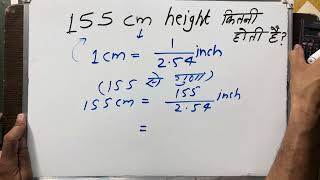 155 cm height कितनी होती है?
1 cm = 1/2.54 inch
(155 से गुणा)
155 cm = 155/2.54 inch
=